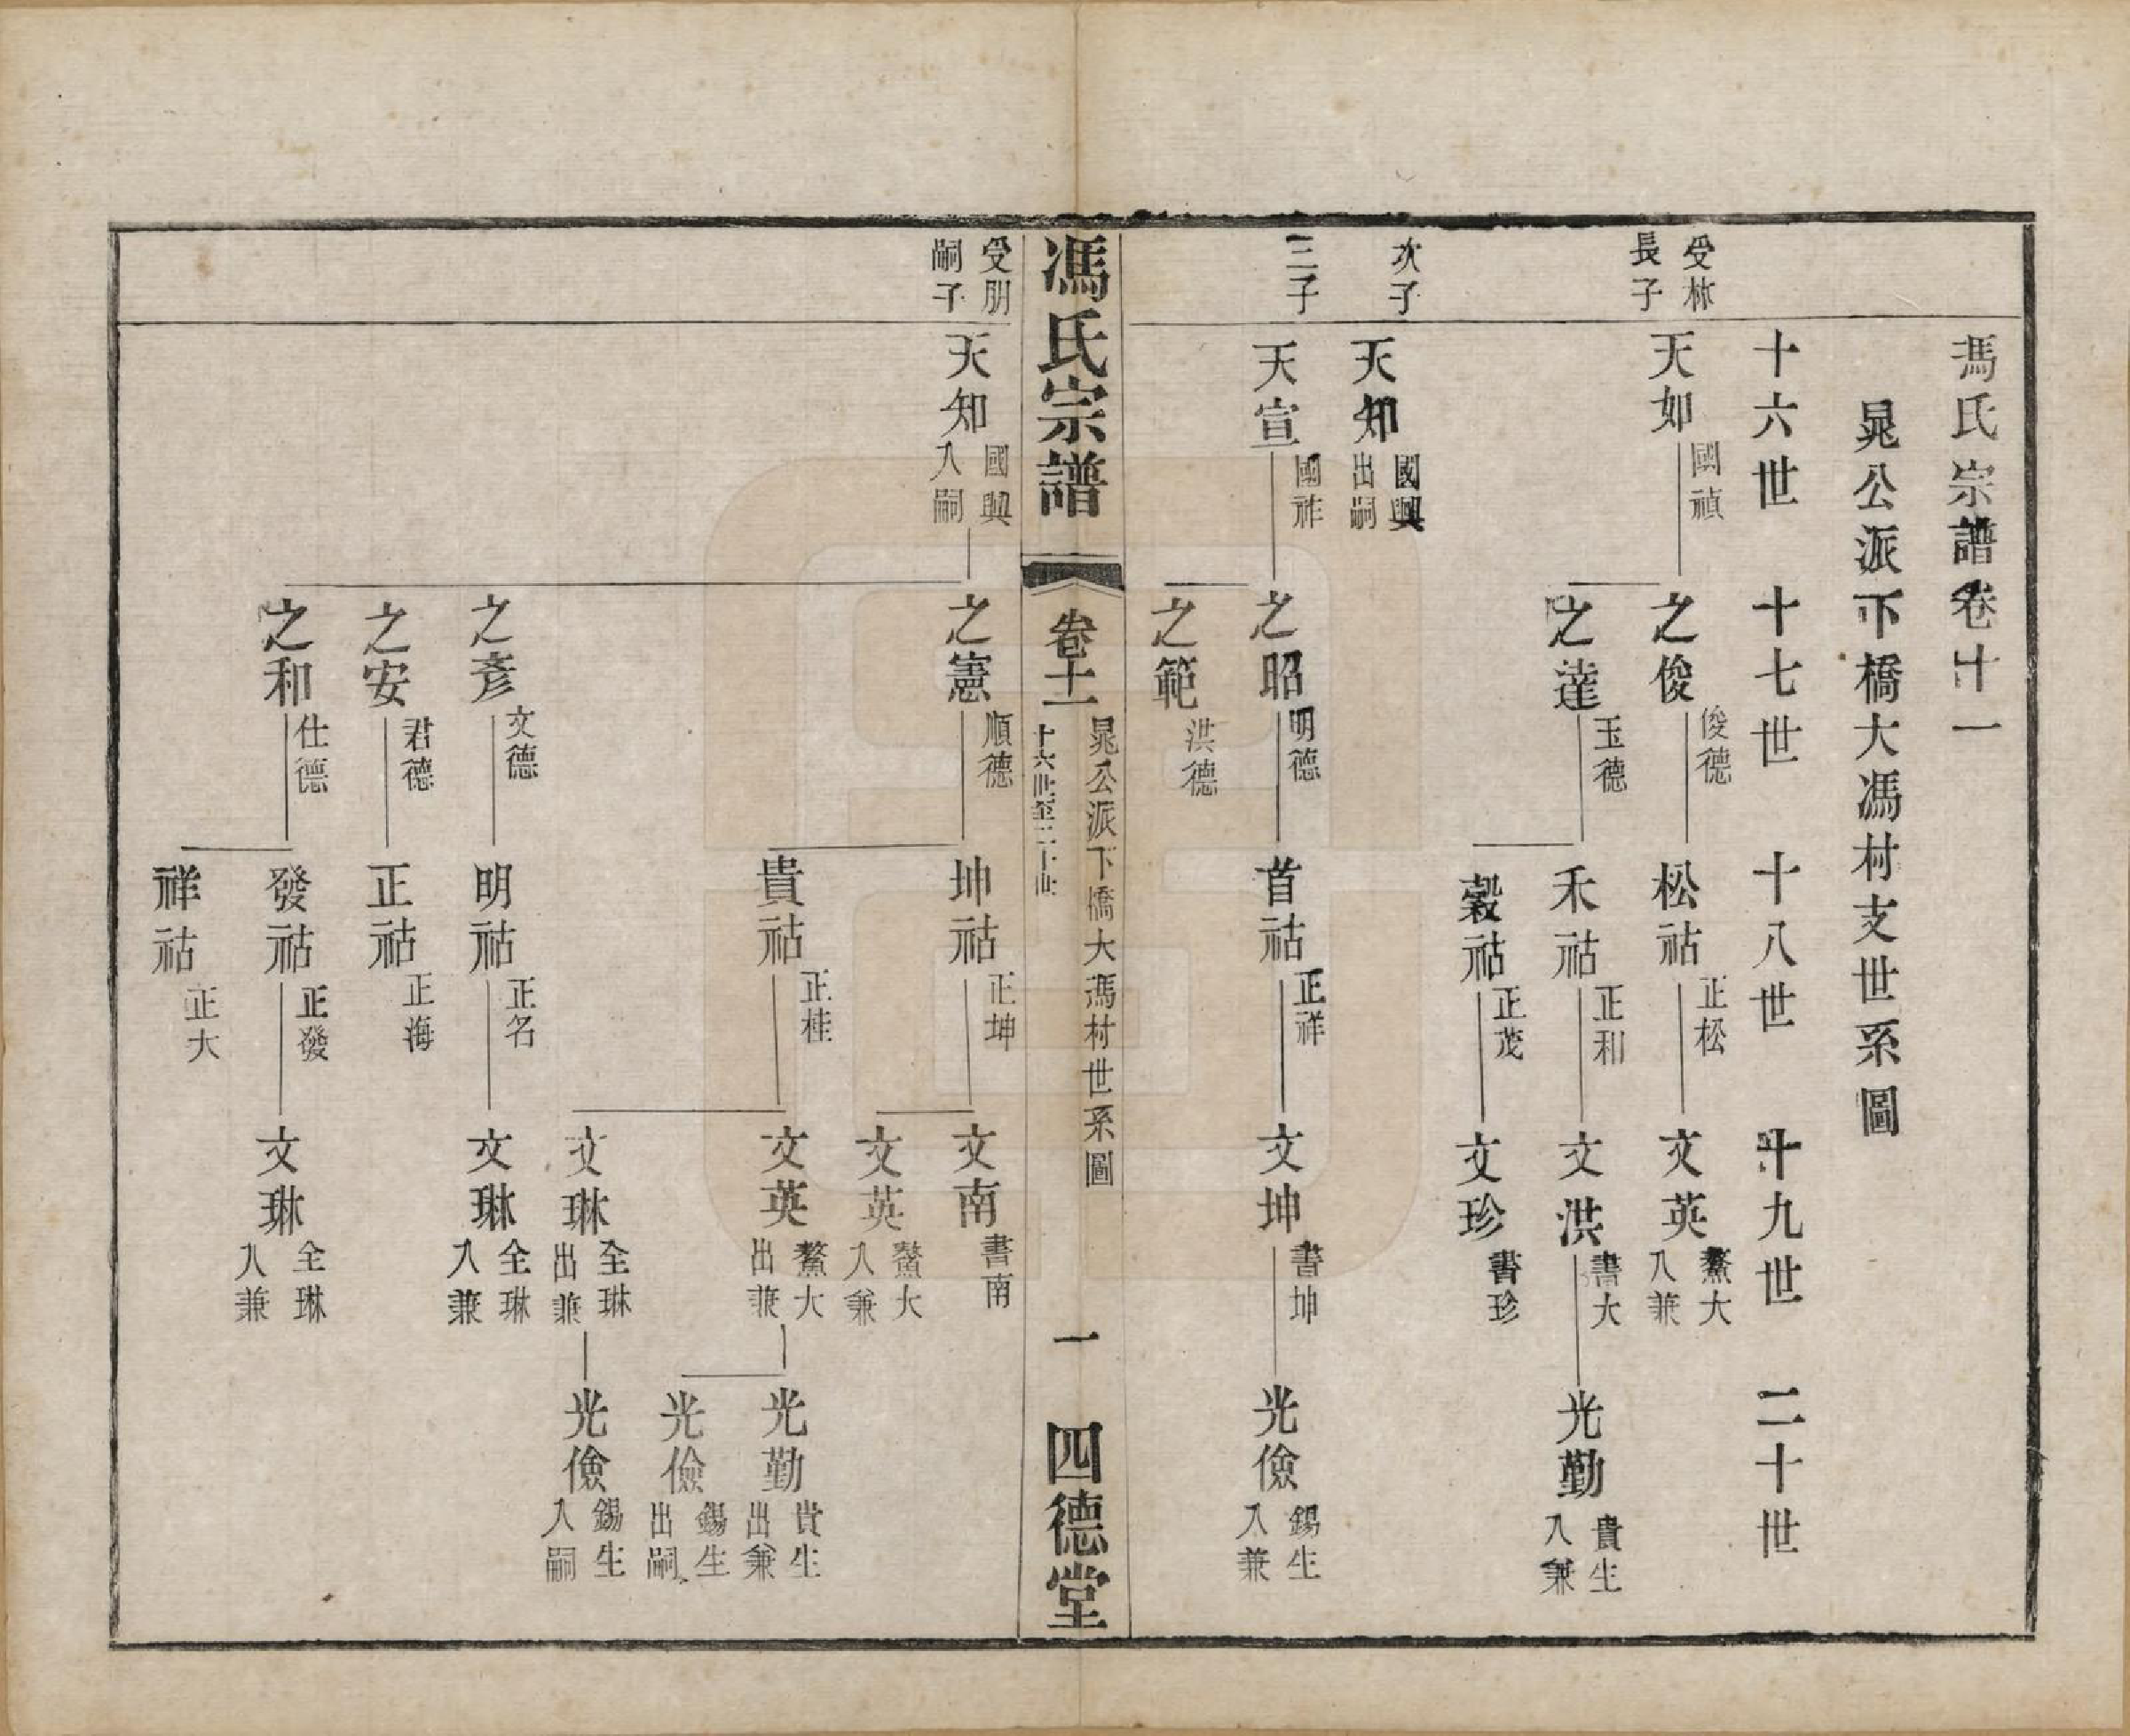 馮氏宗譜卷十一
晁公派下橋大馮村支世系圖
十六世 十七世 十八世 十九世 二十世
受林長子 天如 國禎 之俊 俊德 松祜 正松 文英 鰲大入兼
之達 玉德 禾祜 正和 文洪 書大 光勤 貴生入兼
穀祜 正茂 文珍 書珍
次子 天知 國興出嗣
三子 天宣 國祚 之昭 明德 首祜 正祥 文坤 書坤 光儉 錫生入兼
之範 洪德
馮氏宗譜 卷十一 晁公派下橋大馮村世系圖 十六世至二十世 一 四德堂
受朋嗣子 天知 國興入嗣 之憲 順德 坤祜 正坤 文南 書南
文英 鰲大入兼
貴祜 正桂 文英 鰲大出兼 光勤 貴生出兼
光儉 錫生出嗣
文琳 全琳出兼 光儉 錫生入嗣
之彥 文德 明祜 正名 文琳 全琳入兼
之安 君德 正祜 正海
之和 仕德 發祜 正發 文琳 全琳入兼
祥祜 正大